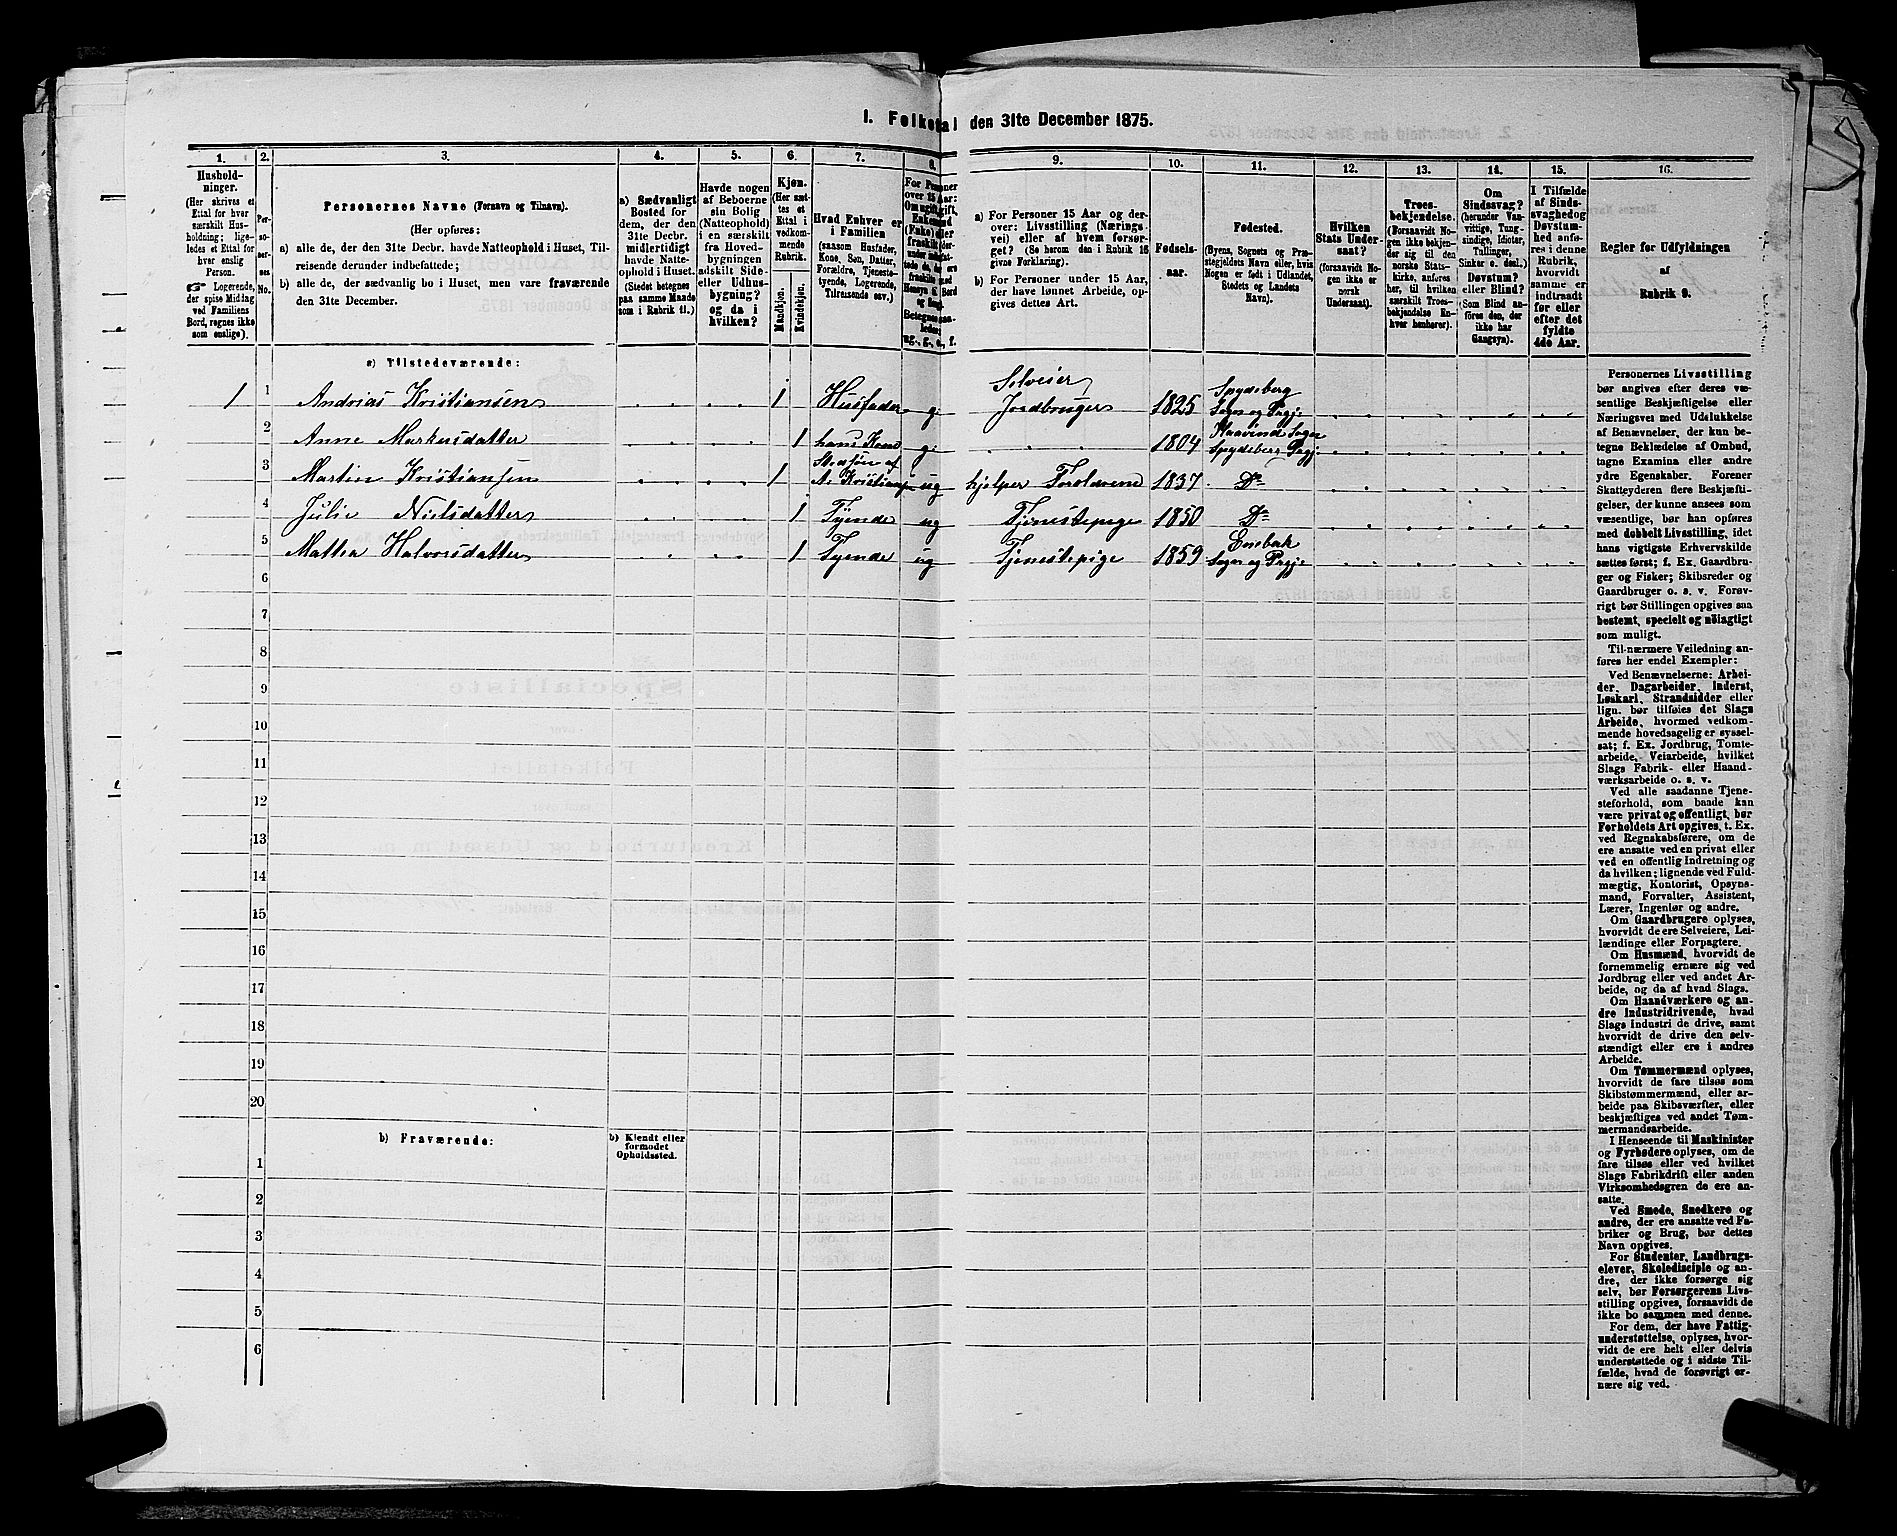 1. Folketal den 31te December 1875.
1. 2. 3. 4. 5. 6. 7. 8. 9. 10. 11. 12. 13. 14. 15. 16.
Hushold-
ninger.
(Her skrives et
Ettal for hver
særskilt Hus-
holdning; lige-
ledes et Ettal for
hver enslig
Person.
☞ Logerende,
der spise Middag
ved Familiens
Bord, regnes ikke
som enslige).
Per-
so-
ner-
nes
No.
Personernes Navne (Fornavn og Tilnavn).
(Her opføres:
a) alle de, der den 31te Decbr. havde Natteophold i Huset, Til-
reisende derunder indbefattede;
b) alle de, der sædvanlig bo i Huset, men vare fraværende
den 31te December.
a) Sædvanligt
Bosted for
dem, der den
31te Decbr.
midlertidigt
havde Natte-
ophold i Huset.
(Stedet betegnes
paa samme Maade
som i Rubrik 11.)
Havde nogen
af Beboerne
sin Bolig
(Natteophold)
i en særskilt
fra Hoved-
bygningen
adskilt Side-
eller Udhus-
bygning?
og da i
hvilken?
Kjøn.
(Her sæt-
tes et
Ettal i
vedkom-
mende
Rubrik.
Mandkjøn.
Kvindekjøn.
Hvad Enhver er
i Familien
(saasom Husfader,
Kone, Søn, Datter,
Forældre, Tjeneste-
tyende, Logerende,
Tilreisende osv.)
For Personer
over 15 Aar:
ug., g., e., f.
a) For Personer 15 Aar og der-
over: Livsstilling (Nærings-
vei) eller af hvem forsør-
get? (Se herom den i Rubrik 16
givne Forklaring).
b) For Personer under 15 Aar,
der have lønnet Arbeide, op-
gives dettes Art.
Fødsels-
aar.
Fødested.
(Byens, Sognets og Præ-
stegjeldets Navn eller, hvis
Nogen er født i Udlandet,
Stedets og Landets
Navn).
Hvilken
Stats Under-
saat?
(forsaavidt No-
gen ikke er
norsk
Undersaat).
Troes-
bekjendelse.
(Forsaavidt No-
gen ikke bekjen-
der sig til den
norske Stats-
kirke, anføres
her, til hvilken
særskilt Troes-
bekjendelse En-
hver henhører).
Om
Sindssvag?
(herunder Van-
vittige, Tung-
sindige, Idioter,
Tullinger,
Sinker o. desl.)
Døvstum?
eller Blind?
(Som Blind an-
føres den, der
ikke har
Gangsyn).
I Tilfælde
af Sinds-
svaghed og
Døvstum-
hed anfø-
res i denne
Rubrik,
hvorvidt
samme er
indtraadt
før eller
efter det
fyldte
4de Aar.
Regler for Udfyldningen
af
Rubrik 9.
a) Tilstedeværende:
1 1 Andrias Kristiansen 1 Husfader g. Selveier Jordbruger 1825 Spydeberg Sogn og Prgj.
2 Anne Markusdatter 1 hans Kone g. 1804 Haavind Sogn Spydeberg Prgj.
3 Martin Kristiansen 1 Stedsøn af A. Kristians. ug hjelper Forældrene 1837 Do
4 Julie Nielsdatter 1 Tyende ug Tjenestepige 1850 Do
5 Mathea Halvorsdatter 1 Tyende ug Tjenestepige 1859 Enebak Sogn og Prgj.
6
7
8
9
10
11
12
13
14
15
16
17
18
19
20
b) Fraværende:
b) Kjendt eller
formodet
Opholdssted.
1
2
3
4
5
6
Personernes Livsstilling
bør angives efter deres væ-
sentlige Beskjæftigelse eller
Næringsvei med Udelukkelse
af Benævnelser, der kun be-
tegne Beklædelse af Ombud,
tagne Examina eller andre
ydre Egenskaber. Forener
Skatteyderen flere Beskjæfti-
gelser, der kunne ansees som
væsentlige, bør han opføres
med dobbelt Livsstilling, idet
hans vigtigste Erhvervskilde
sættes først; f. Ex. Gaardbru-
ger og Fisker; Skibsreder og
Gaardbruger o. s. v. Forøv-
rigt bør Stillingen opgives saa
bestemt, specielt og nøiagtigt
som muligt.
Til nærmere Veiledning an-
føres her endel Exempler:
Ved Benævnelserne: Arbei-
der, Dagarbeider, Inderst,
Løskarl, Strandsidder eller
lign. bør tilføies det Slags
Arbeide, hvormed vedkom-
mende hovedsagelig er syssel-
sat; f. Ex. Jordbrug, Tomte-
arbeide, Veiarbeide, hvilket
Slags Fabrik- eller Haand-
værksarbeide o. s. v.
Ved alle saadanne Tjene-
steforhold, som baade kan
være privat og offentligt, bør
Forholdets Art opgives, t. Ex.
ved Regnskabsførere, om de
ere ansatte ved en privat eller
ved en offentlig Indretning og
da hvilken; lignende ved Fuld-
mægtig, Kontorist, Opsyns-
mand, Forvalter, Assistent,
Lærer, Ingeniør og andre.
Om Gaardbrugere oplyses,
hvorvidt de ere Selveiere, Lei-
lændinge eller Forpagtere.
Om Husmænd, hvorvidt de
fornemmelig ernære sig ved
Jordbrug eller ved andet Ar-
beide, og da af hvad Slags.
Om Haandværkere og an-
dre Industridrivende, hvad
Slags Industri de drive, samt
hvorvidt de drive den selv-
stændigt eller ere i andres
Arbeide.
Om Tømmermænd oplyses,
hvorvidt de fare tilsøs som
Skibstømmermænd, eller ar-
beide paa Skibsværfter, eller
beskjæftiges ved andet Tøm-
mermandsarbeide.
I Henseende til Maskinister
og Fyrbødere oplyses, om de
fare tilsøs eller ved hvilket
Slags Fabrikdrift eller anden
Virksomhedsgren de ere an-
satte.
Ved Smede, Snedkere og
andre, der ere ansatte ved Fa-
briker og Brug, bør dettes
Navn opgives.
For Studenter, Landbrugs-
elever, Skoledisciple og an-
dre, der ikke forsørge sig
selv, bør Forsørgerens Livs-
stilling opgives, forsaavidt de
ikke bo sammen med denne.
For dem, der have Fattig-
understøttelse, oplyses, hvor-
vidt de ere helt eller delvis
understøttede og i sidste Til-
fælde, hvad de forøvrigt er-
nære sig ved.